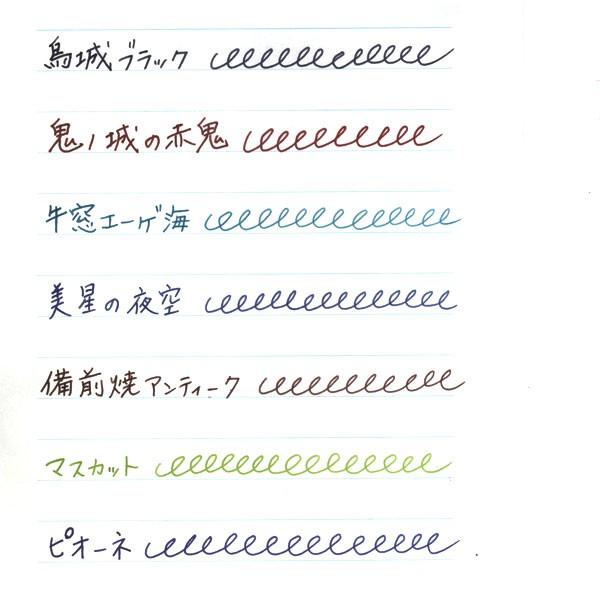 烏城ブラック
鬼ノ城の赤鬼
牛窓エーゲ海
美星の夜空
備前焼アンティーク
マスカット
ピオーネ